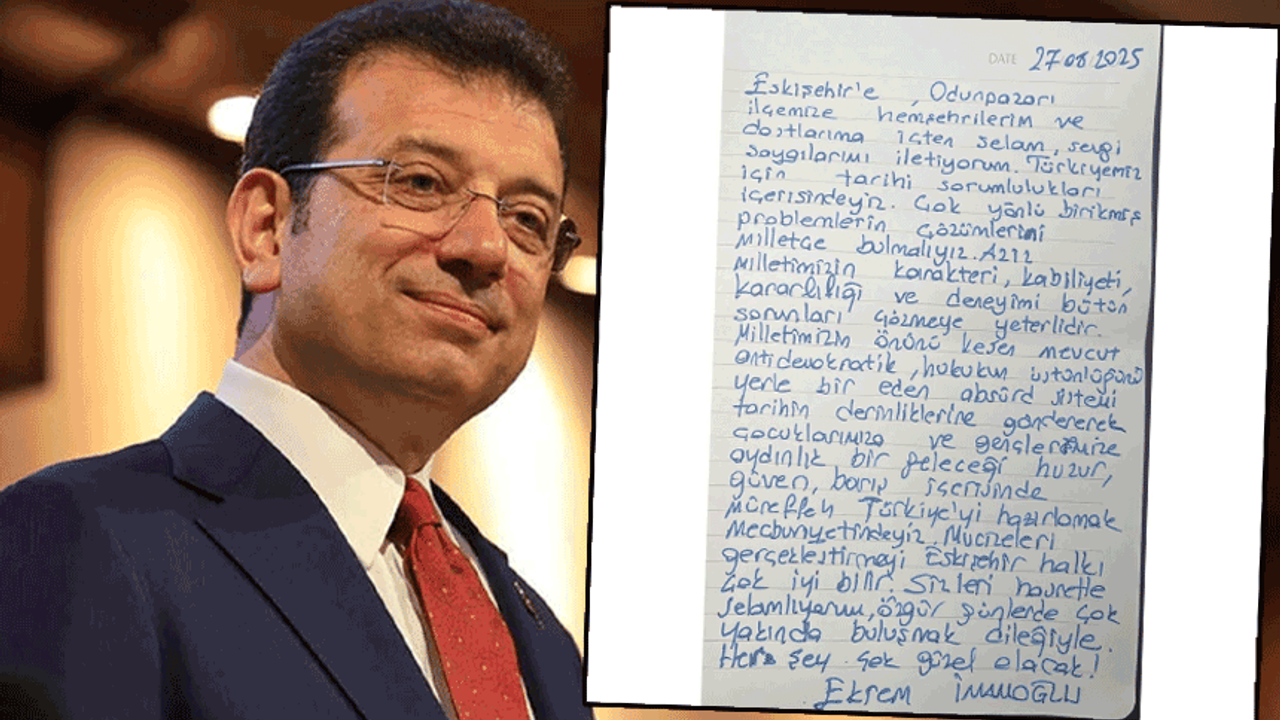 DATE 27 08 2025
Eskişehir'e , Odunpazarı
ilçemize hemşehrilerim ve
dostlarıma içten selam, sevgi
saygılarımı iletiyorum. Türkiyemiz
için tarihi sorumlulukları
içerisindeyiz. Çok yönlü birikmiş
problemlerin çözümlerini
Milletçe bulmalıyız. Aziz
Milletimizin karakteri, kabiliyeti,
kararlılığı ve deneyimi bütün
sorunları çözmeye yeterlidir.
Milletimizin önünü kesen mevcut
antidemokratik, hukukun üstünlüğünü
yerle bir eden absürd sistemi
tarihin derinliklerine göndererek
çocuklarımıza ve gençlerimize
aydınlık bir geleceği huzur,
güven, barış içerisinde
müreffeh Türkiye'yi hazırlamak
Mecburiyetindeyiz. Mucizeleri
gerçekleştirmeyi Eskişehir halkı
çok iyi bilir. Sizleri hasretle
selamlıyorum, özgür günlerde çok
yakında buluşmak dileğiyle.
Her şey çok güzel olacak!
Ekrem İMAMOĞLU